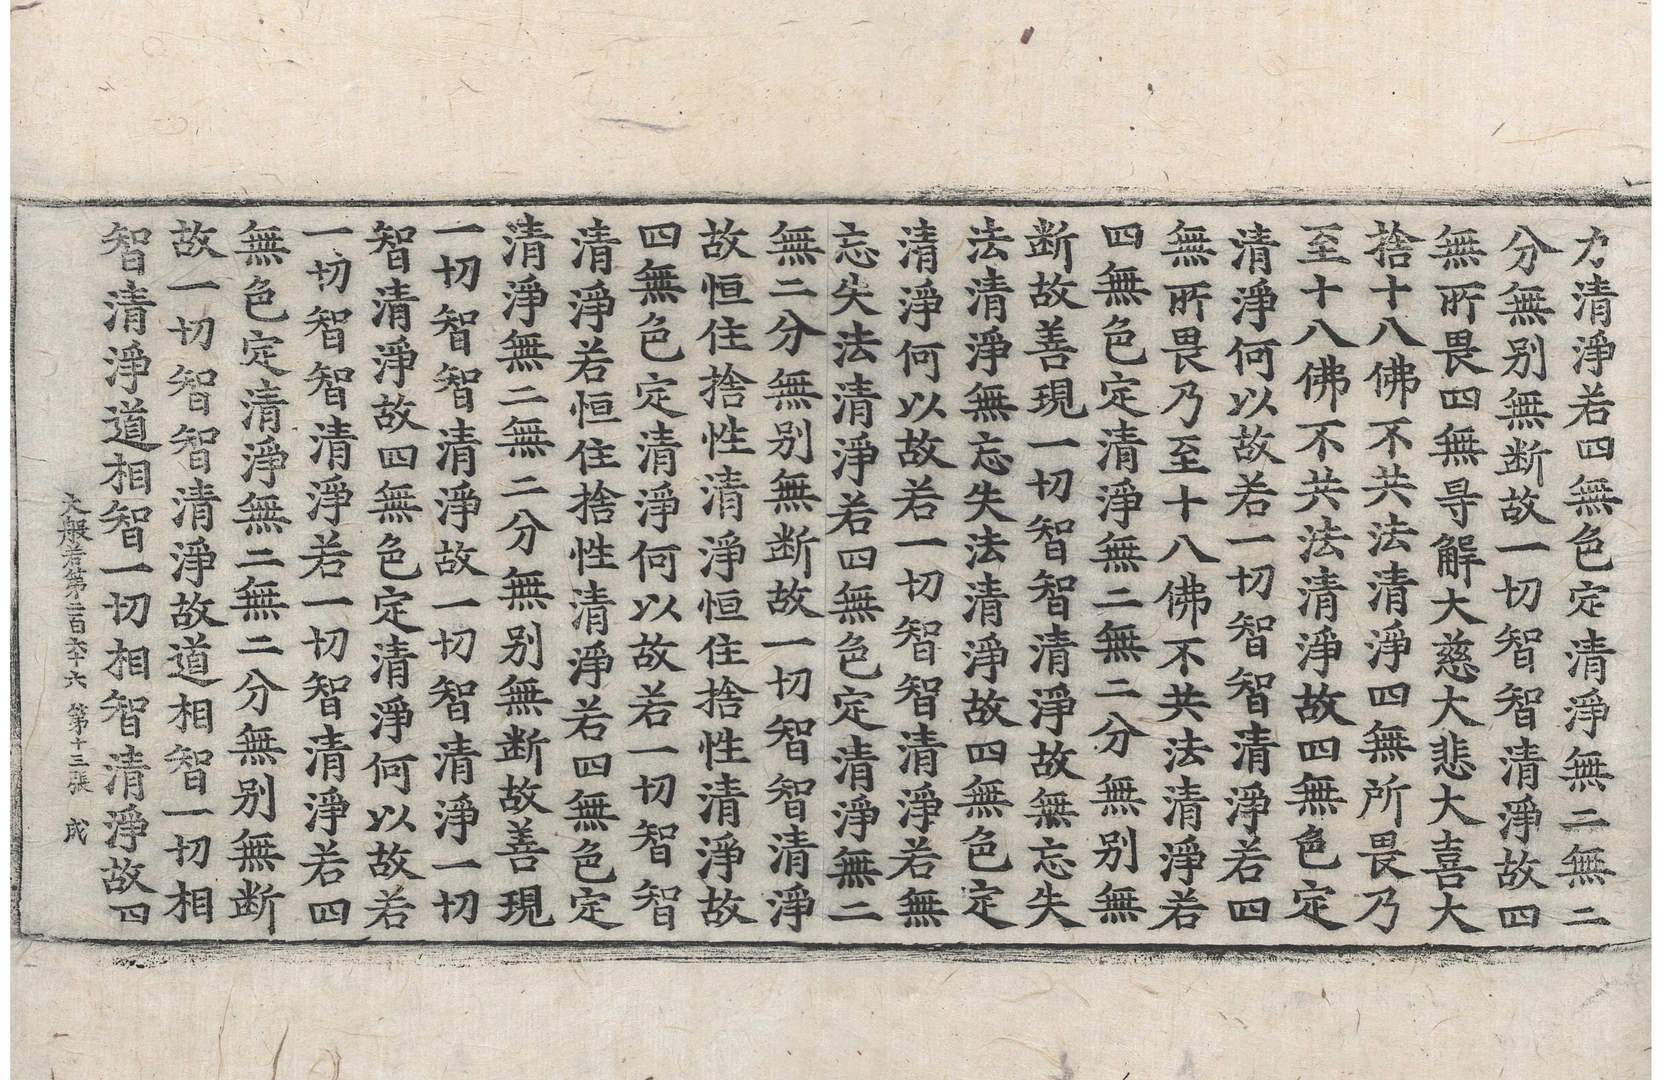 力清淨若四無色定清淨無二無二
分無別無断故一切智智清淨故四
無所畏四無㝵解大慈大悲大喜大
捨十八佛不共法清淨四無所畏乃
至十八佛不共法清淨故四無色定
清淨何以故若一切智智清淨若四
無所畏乃至十八佛不共法清淨若
四無色定清淨無二無二分無別無
断故善現一切智智清淨故無忘失
法清淨無忘失法清淨故四無色定
清淨何以故若一切智智清淨若無
忘失法清淨若四無色定清淨無二
無二分無別無断故一切智智清淨
故恒住捨性清淨恒住捨性清淨故
四無色定清淨何以故若一切智智
清淨若恒住捨性清淨若四無色定
清淨無二無二分無別無断故善現
一切智智清淨故一切智清淨一切
智清淨故四無色定清淨何以故若
一切智智清淨若一切智清淨若四
無色定清淨無二無二分無別無断
故一切智智清淨故道相智一切相
智清淨道相智一切相智清淨故四
大般若第二百六十六 第十三張 成